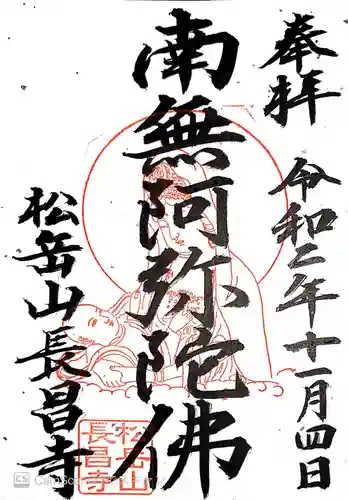 奉拝
令和二年十一月四日
南無阿弥陀佛
松岳山長昌寺
松岳山
長昌寺
CS CamScanner